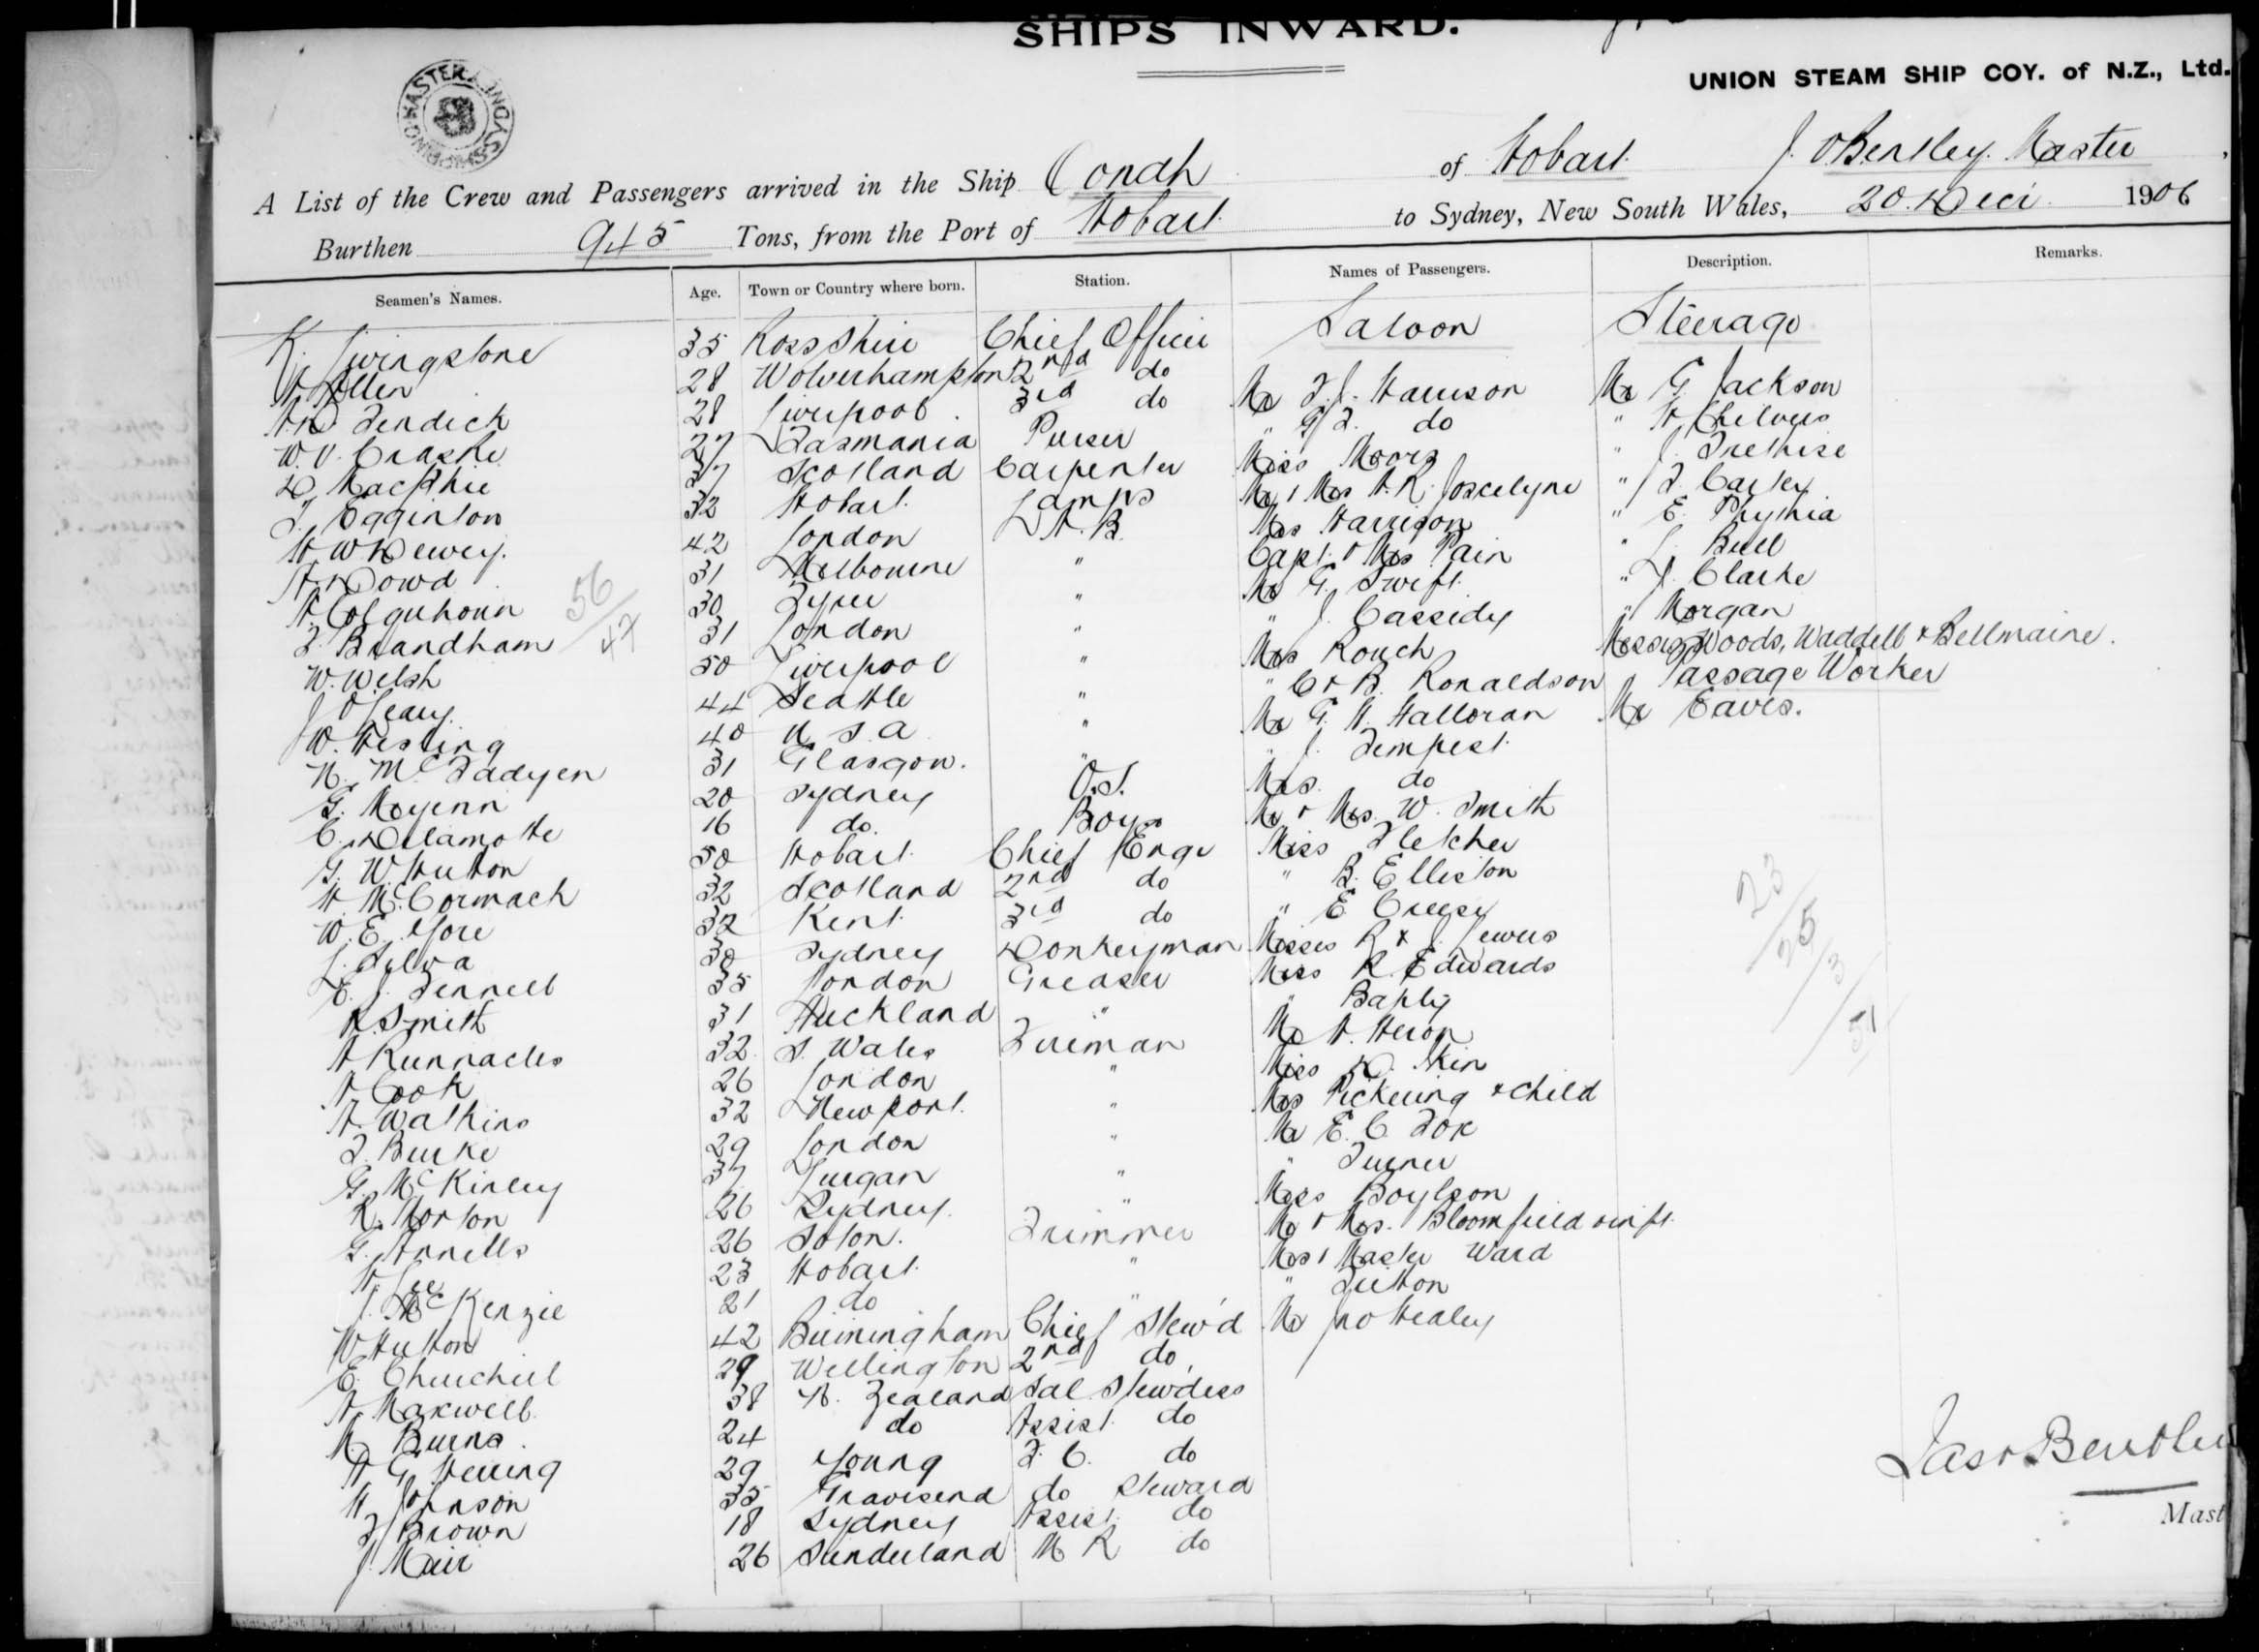 SHIPS INWARD.
UNION STEAM SHIP COY. of N.Z., Ltd.
SHIPPING MASTER SYDNEY
A List of the Crew and Passengers arrived in the Ship Oonah of Hobart J. O Bentley. Master
Burthen 945 Tons, from the Port of Hobart to Sydney, New South Wales, 20. Decr 1906
Seamen's Names. Age. Town or Country where born. Station. Names of Passengers. Description. Remarks.
K. Livingstone 35 Ross Shire Chief Officer Saloon Steerage
A Allen 28 Wolverhampton 2nd do
28 Liverpool 3rd do Mr F. J. Harrison Mr G. Jackson
27 Tasmania Purser " G F. do " H Chilvers
D. MacPhie 37 Scotland Carpenter Miss Moore " J.
T. Egginton 32 Hobart Lamps Mr & Mrs A. R. Joscelyne "
H W Dewey. 42 London A. B. Mrs Harrison " E.
A. Dowd 31 Melbourne " Capt. & Mrs Pain " Bull
A. Colquhoun 30 " Mr G. Swift " J. Clarke
F. Brandham 31 London " " J. Cassidy " Morgan
W. Welsh 50 Liverpool " Mrs Rouch Messrs Woods, Waddell & Bellmaine.
J O'Leary. 44 Seattle " " C & B. Ronaldson Passage Worker
W. Hesling 40 U S. A " Mr G. H. Halloran Mr Eaves.
N. McFadyen 31 Glasgow. " " J. Tempest
G. 20 Sydney O.S. Mrs. do
C. Delamotte 16 do. Boy Mr & Mrs. W. Smith
G. W Hutton 50 Hobart Chief Engr Miss Fletcher
A McCormack 32 Scotland 2nd do " B. Elliston
W. E. Gore 32 Kent 3rd do " E.
L. Silva 30 Sydney Donkeyman Misses R & J. Jewers
E. J. Fennell 35 London Greaser Miss R. Edwards
R. Smith 31 Auckland "
A Runnacles 32 S. Wales Fireman Mr A. Heron
A Cook 26 London " Miss D.
A. Watkins 32 Newport " Mrs Pickering & child
F. Burke 29 London " Mr E. C. Fox
G. McKinley 37 Lurgan " " Turner
R. Morton 26 Sydney. " Miss Boylson
G. Annells 26 Soton. Trimmer Mr & Mrs. Bloomfield & inft.
A. Lee 23 Hobart " Mrs & Master Ward
J. McKenzie 21 do " "
W Hutton 42 Birmingham Chief Stew'd Mr Jno Healey
E. Churchill 29 Wellington 2nd do
A. Maxwell 38 N. Zealand Sal. Stew'dess
M. Burns. 24 do Assist. do
A G. Herring 29 Young F. C. do
H. Johnson 35 Gravesend do Steward
F Brown 18 Sydney Assist. do
J. Mair 26 Sunderland M R do
56
47
23
25
3
51
Jas O Bentley
Mast